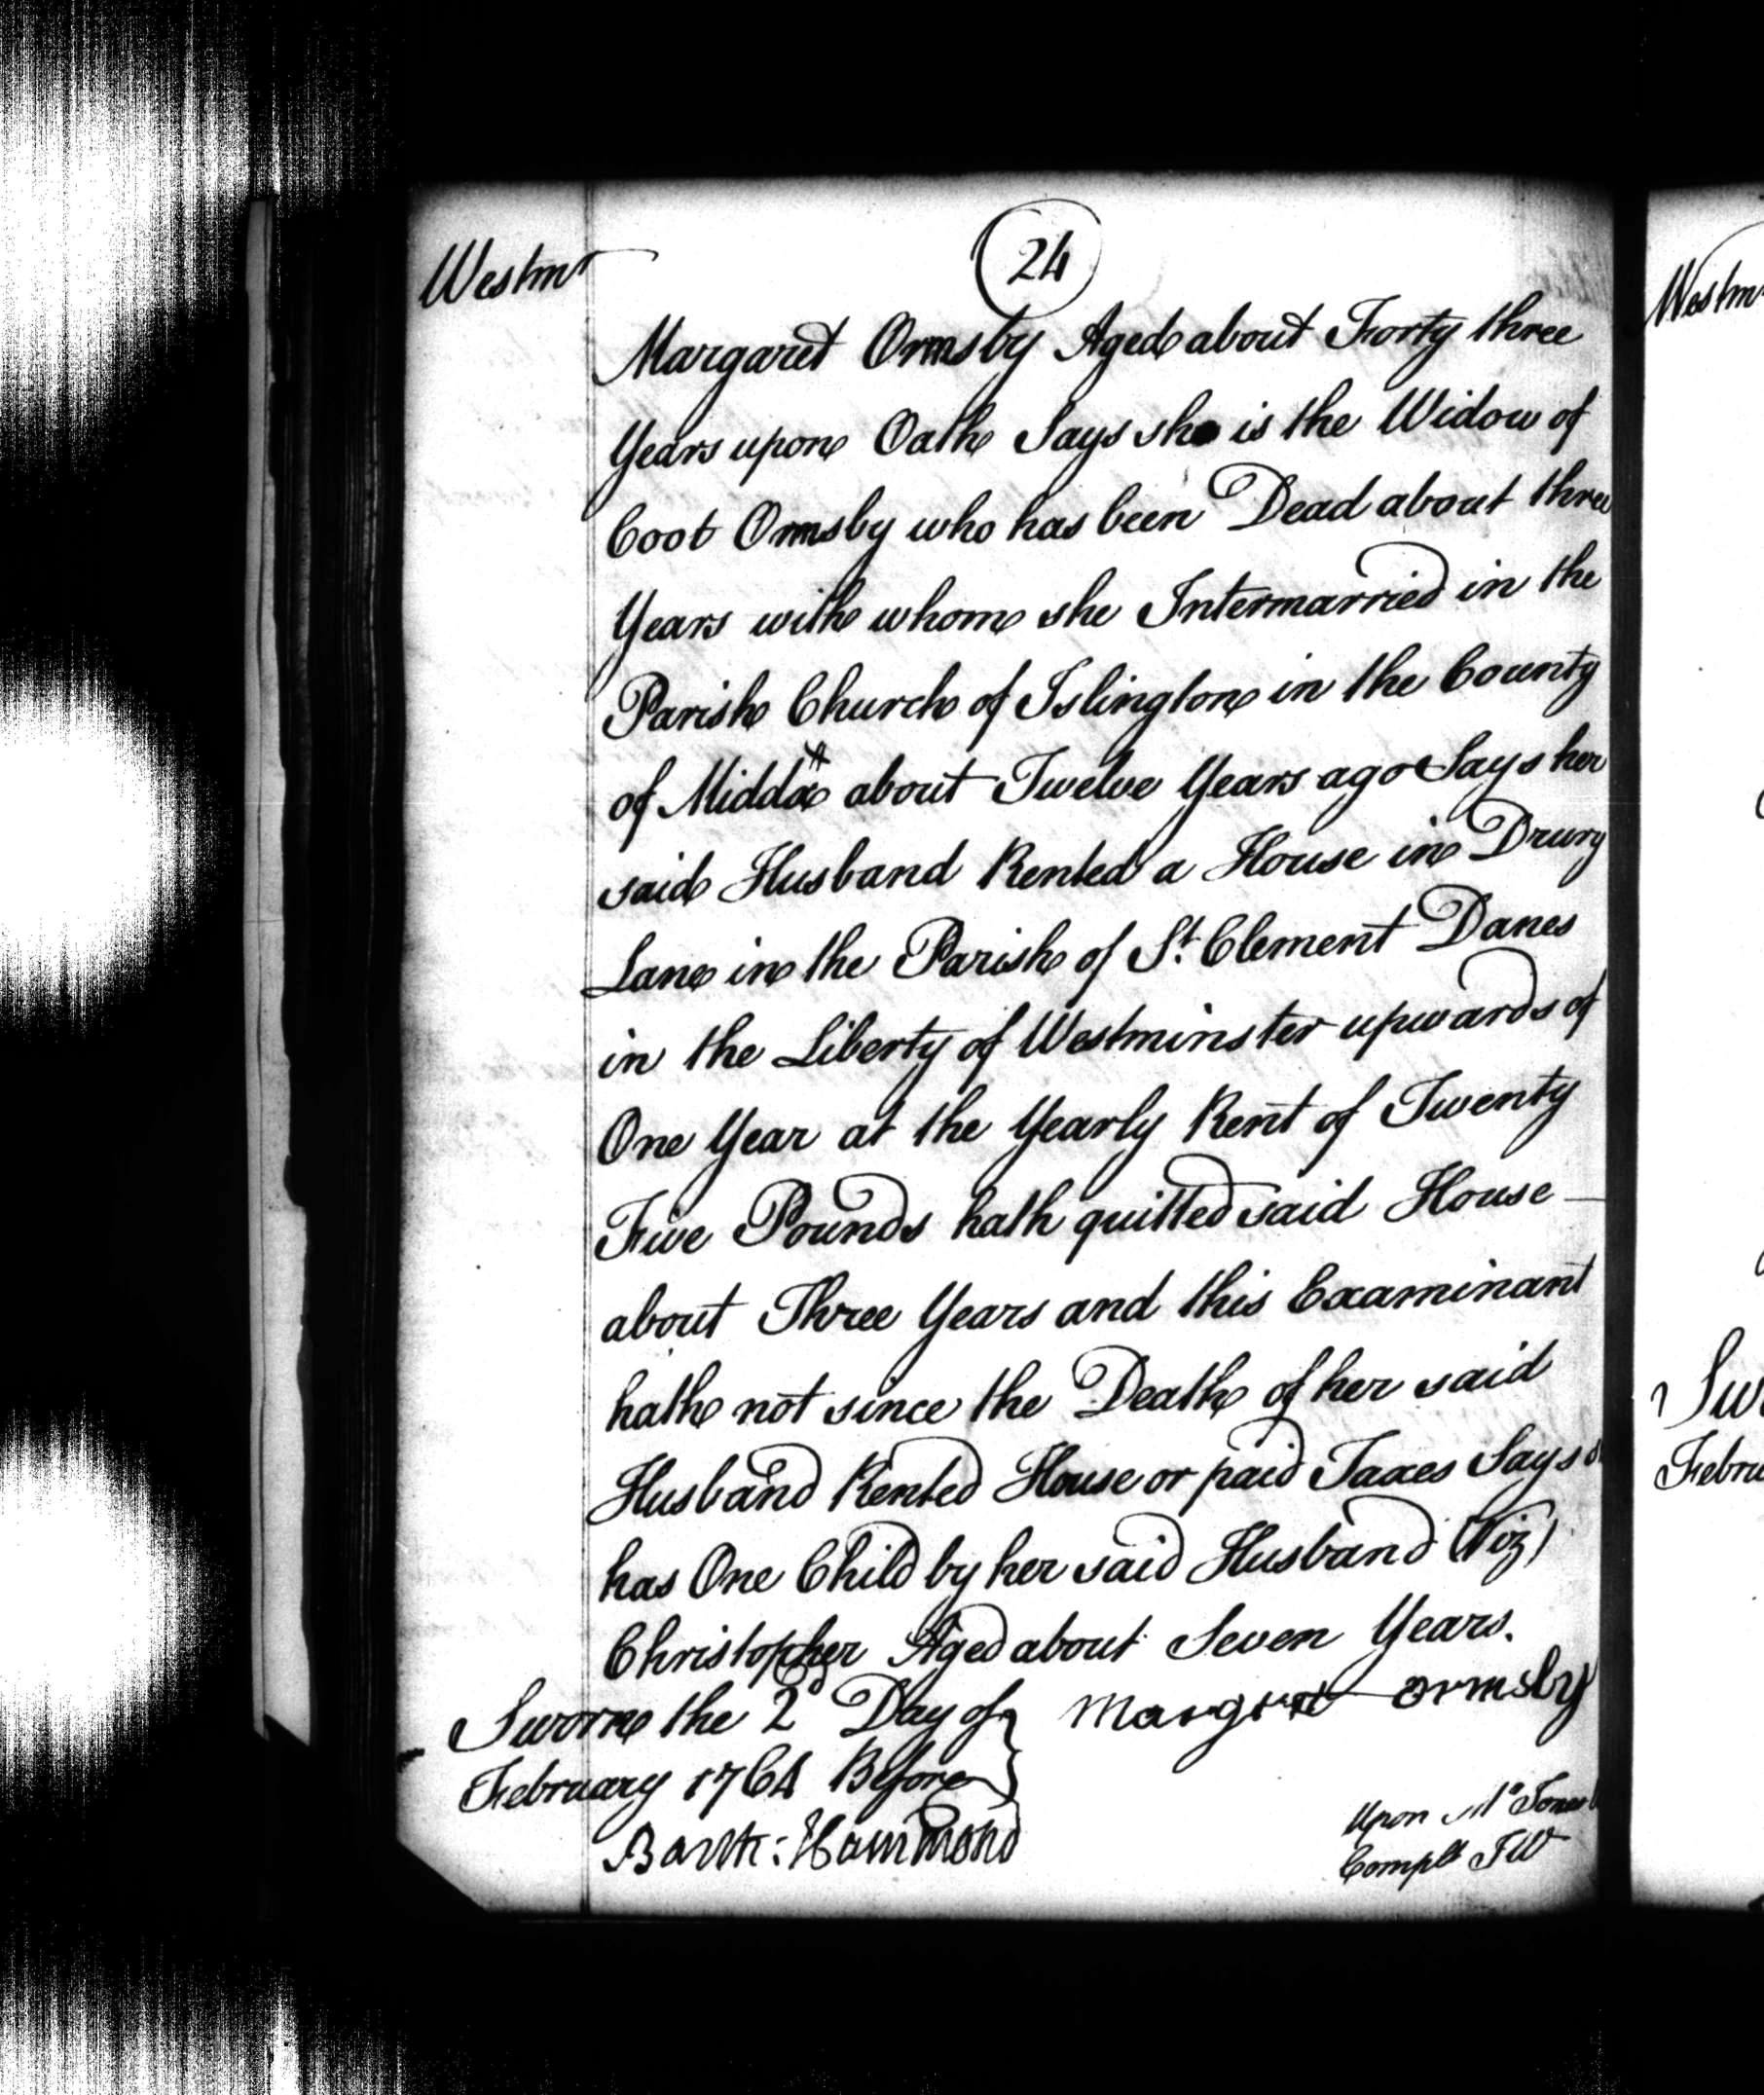 Westmr
24
Margaret Ormsby Aged about Forty three
Years upon Oath Says she is the Widow of
Coot Ormsby who has been Dead about three
Years with whom she Intermarried in the
Parish Church of Islington in the County
of Middx about Twelve Years ago Says her
said Husband Rented a House in Drury
Lane in the Parish of St. Clement Danes
in the Liberty of Westminster upwards of
One Year at the Yearly Rent of Twenty
Five Pounds hath quitted said House
about Three Years and this Examinant
hath not since the Death of her said
Husband Rented House or paid Taxes Says
has One Child by her said Husband (Viz)
Christopher Aged about Seven Years.
Sworn the 2d Day of
February 1764 Before
Margret ormsby
Barth: Hammond
Upon Mr Jones
Complt JW
Westmr
Febru